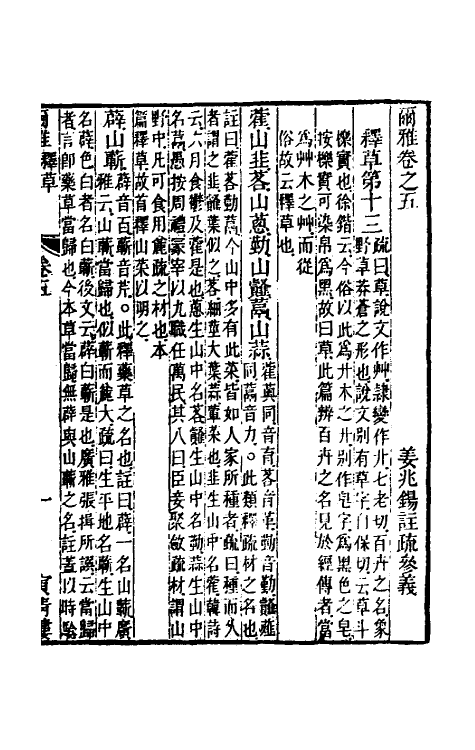 爾雅卷之五
姜兆錫註疏參義
釋草第十三
疏曰草說文作艸隸變作廾七老切百卉之名象
野草莽蒼之形也說文别有草字自保切云草斗
櫟實也徐鍇云今俗以此爲廾木之廾别作皂字爲黑色之皂
按櫟實可染帛爲黑故曰草此篇辨百卉之名見於經傳者當
爲艸木之艸而從
俗故云釋草也
藿山韭茖山蔥勤山䪥蒚山蒜
藿與同音育茖音革勤音勤䪥薤
同蒚音力。此類釋疏材之名也
註曰藿茖勤蒚今山中多有此菜皆如人家所種者疏曰種而久
者謂之韭䪥葉似之茖細莖大葉蒜葷菜也韭生山中名藿韓詩
云六月食鬱及藿是也蔥生山中名茖䪥生山中名勤蒜生山中
名蒚愚按周禮冢宰以九職任萬民其八曰臣妾聚斂疏材謂山
野中凡可食用麄疏之材也本
篇釋草故首釋山菜以明之
薜山蘄
薜音百蘄音芹。此釋藥草之名也註曰薜一名山蘄廣
雅云山蘄當歸也似蘄而麄大疏曰生平地名蘄生山中
名薜色白者名白蘄後文云薜白蘄是也廣雅張揖所誤云當歸
者言即藥草當歸也今本草當歸無薜與山蘄之名註蓋以時驗
爾雅釋草
卷五
一
寅清樓